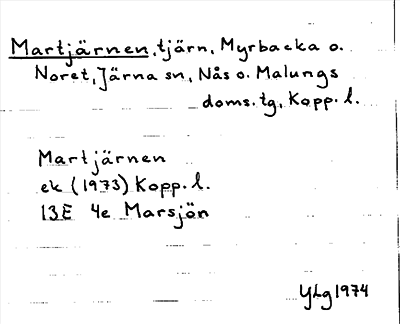 Martjärnen, tjärn, Myrbacka o.
Noret, Järna sn, Nås o. Malungs
doms. tg, Kopp. l.
Martjärnen
ek (1973) Kopp. l.
13E 4e Marsjön
YLg 1974